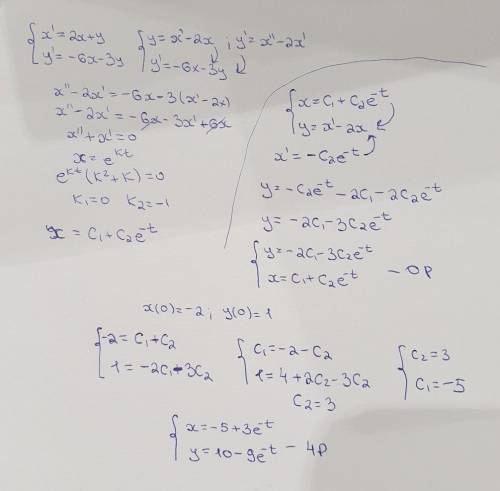 {x' = 2x+y
{y' = -6x-3y
{y = x'-2x ; y' = x''-2x'
{y' = -6x-3y
x''-2x' = -6x-3(x'-2x)
x''-2x' = -6x-3x'+6x
x''+x' = 0
x = e^{kt}
e^{kt}(k²+k) = 0
k₁=0 k₂=-1
x = C₁+C₂e^{-t}
{x = C₁+C₂e^{-t}
{y = x'-2x
x' = -C₂e^{-t}
y = -C₂e^{-t} - 2C₁ - 2C₂e^{-t}
y = -2C₁-3C₂e^{-t}
{y = -2C₁-3C₂e^{-t}
{x = C₁+C₂e^{-t} - OP
x(0)=-2; y(0)=1
{-2 = C₁+C₂
{1 = -2C₁-3C₂
{C₁ = -2-C₂
{1 = 4+2C₂-3C₂
C₂=3
{C₂ = 3
{C₁ = -5
{x = -5+3e^{-t}
{y = 10-9e^{-t} - ЧР